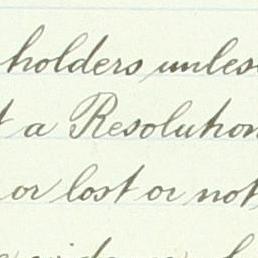 holders unless
a Resolution
or lost or not